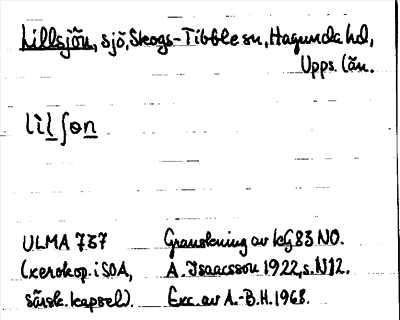 Lillsjön, sjö, Skogs-Tibble sn, Hagunda hd,
Upps. län.
lìlʃon
ULMA 737 Granskning av kG 83 NO.
(xerokop. i SOA, A. Isaacsson 1922, s. N12.
särsk. kapsel). Exc. av A.-B.H. 1968.